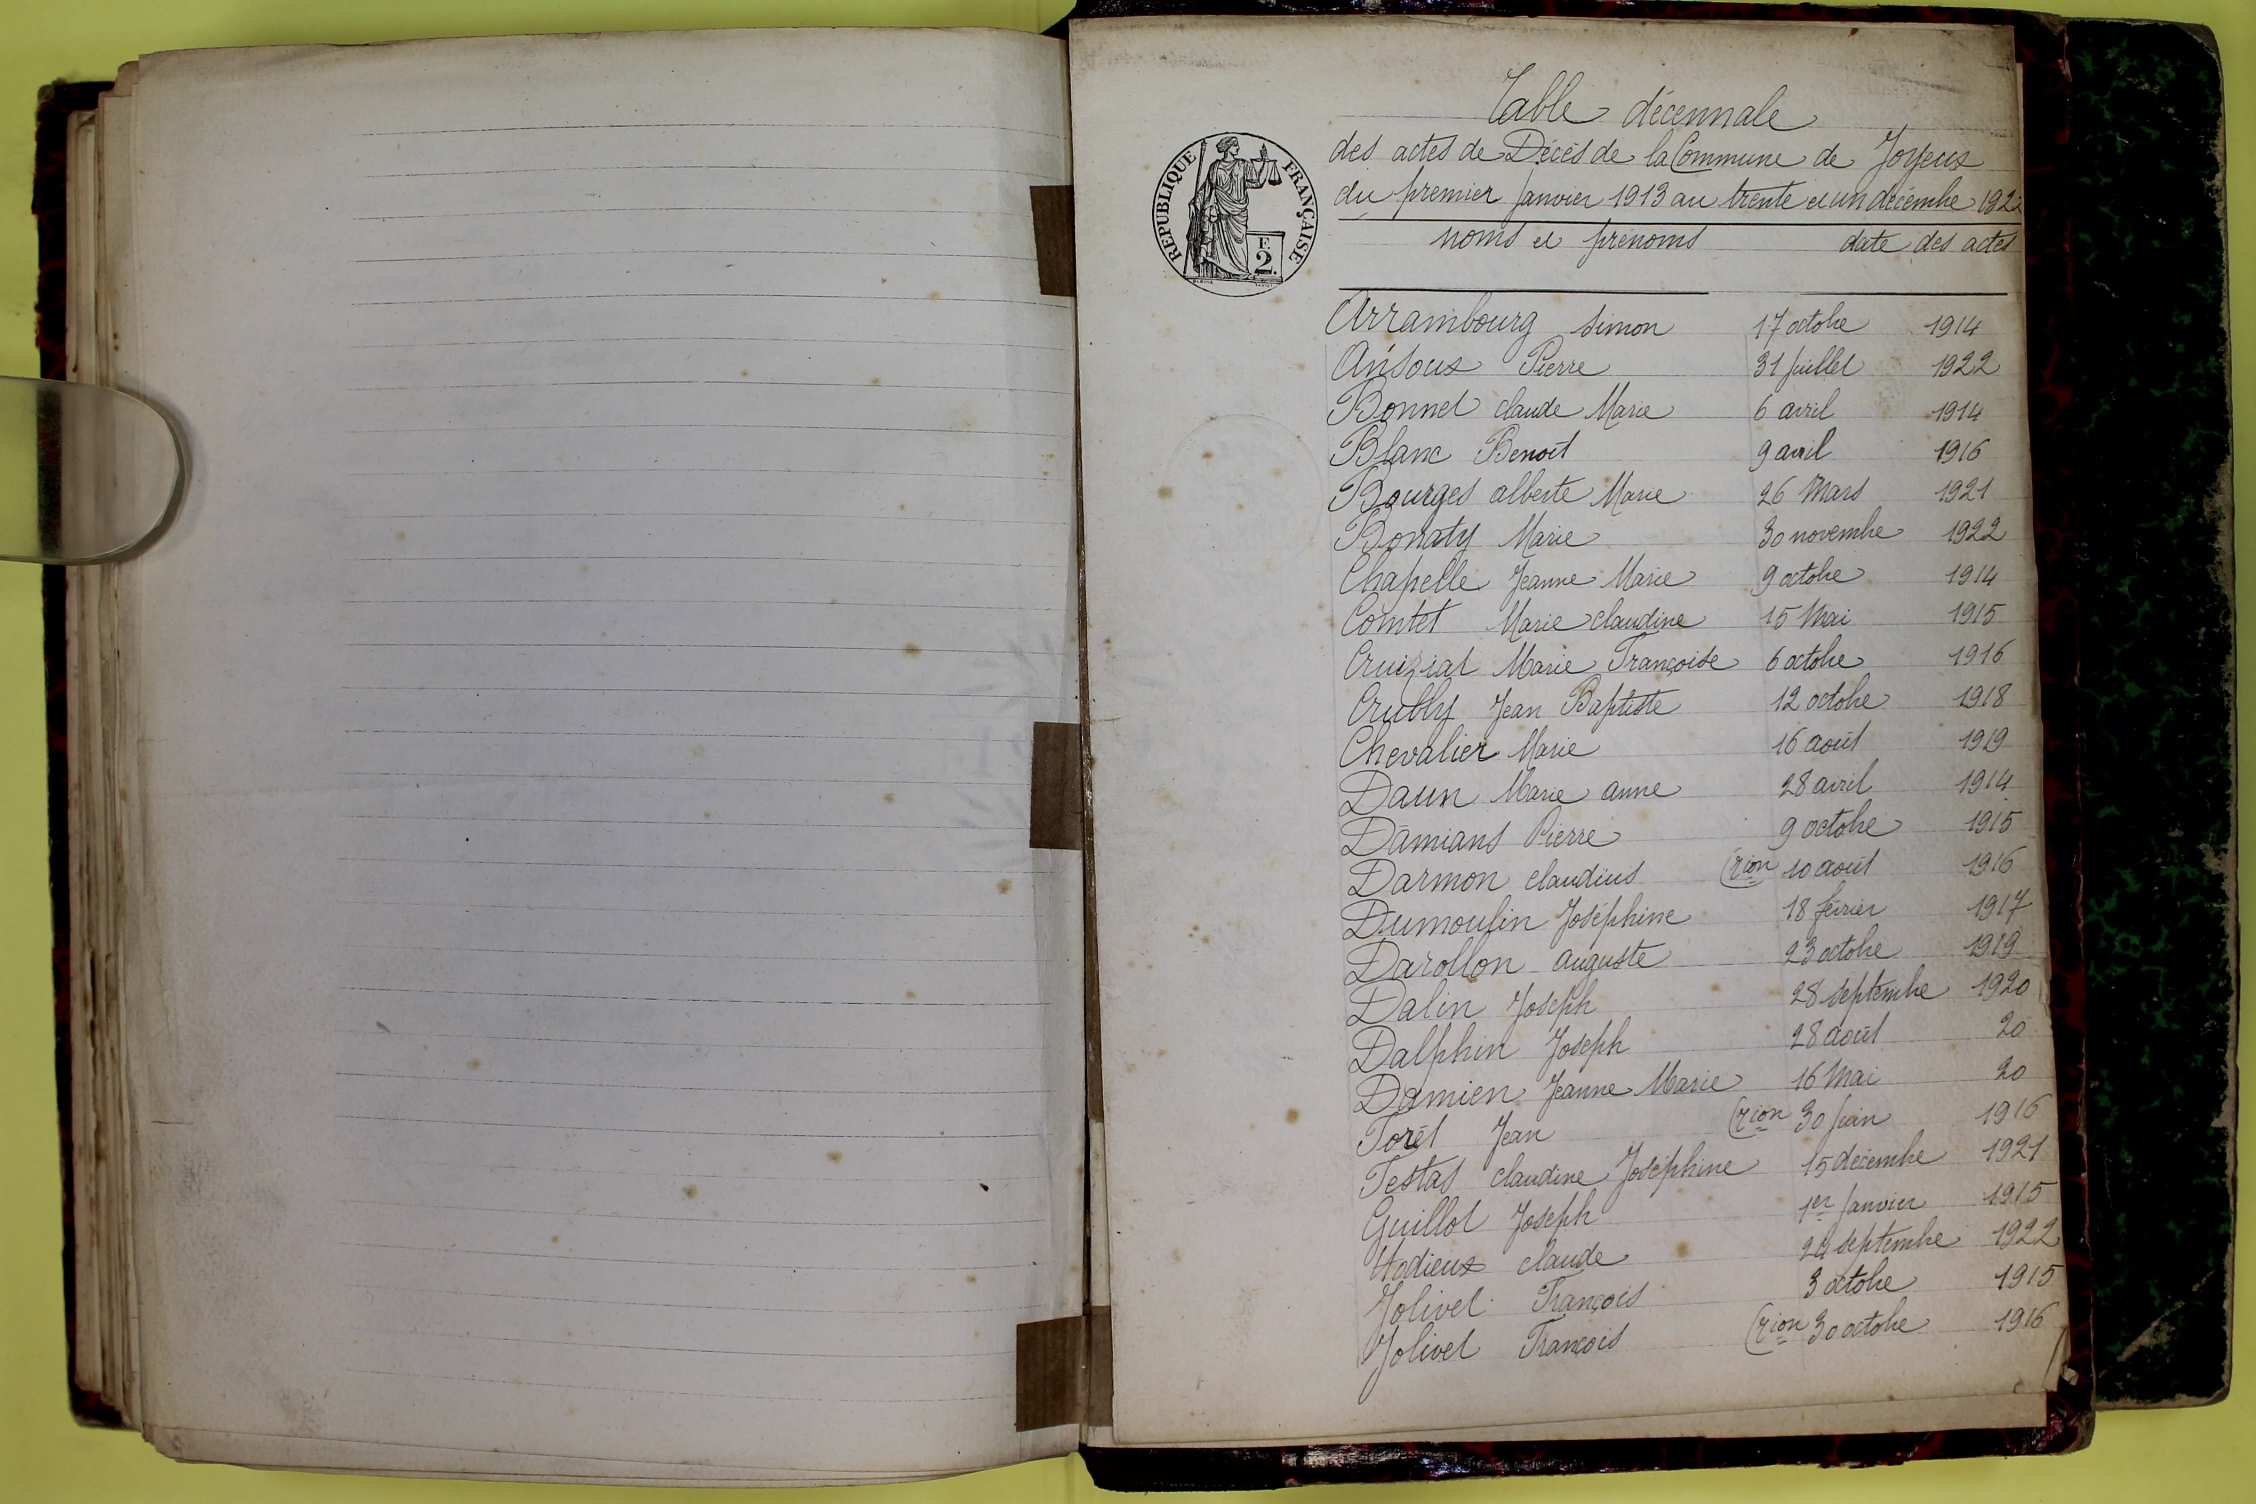 Table décennale
des actes de Décès de la Commune de Joyeux
du premier Janvier 1913 au trente et un décembre 1922
RÉPUBLIQUE FRANÇAISE
F.
2.
noms et prénoms date des actes
Arrambourg Simon 17 octobre 1914
Ansoux Pierre 31 Juillet 1922
Bonnet claude Marie 6 avril 1914
Blanc Benoit 9 avril 1916
Bourges alberte Marie 26 Mars 1921
Bonaty Marie 30 novembre 1922
Chapelle Jeanne Marie 9 octobre 1914
Comtet Marie claudine 15 Mai 1915
Cruiziat Marie Françoise 6 octobre 1916
Crubly Jean Baptiste 12 octobre 1918
Chevalier Marie 16 août 1919
Daun Marie anne 28 avril 1914
Damians Pierre 9 octobre 1915
Darmon claudius (rion 10 août 1916
Dumoulin Joséphine 18 février 1917
Darollon auguste 23 octobre 1919
Dalin Joseph 28 septembre 1920
Dalphin Joseph 28 août 20
Damien Jeanne Marie 16 Mai 20
Forêt Jean (rion 30 Juin 1916
Festas claudine Joséphine 15 décembre 1921
Guillot Joseph 1er Janvier 1915
Hodieux claude 24 septembre 1922
Jolivet François 3 octobre 1915
Jolivet François (rion 30 octobre 1916